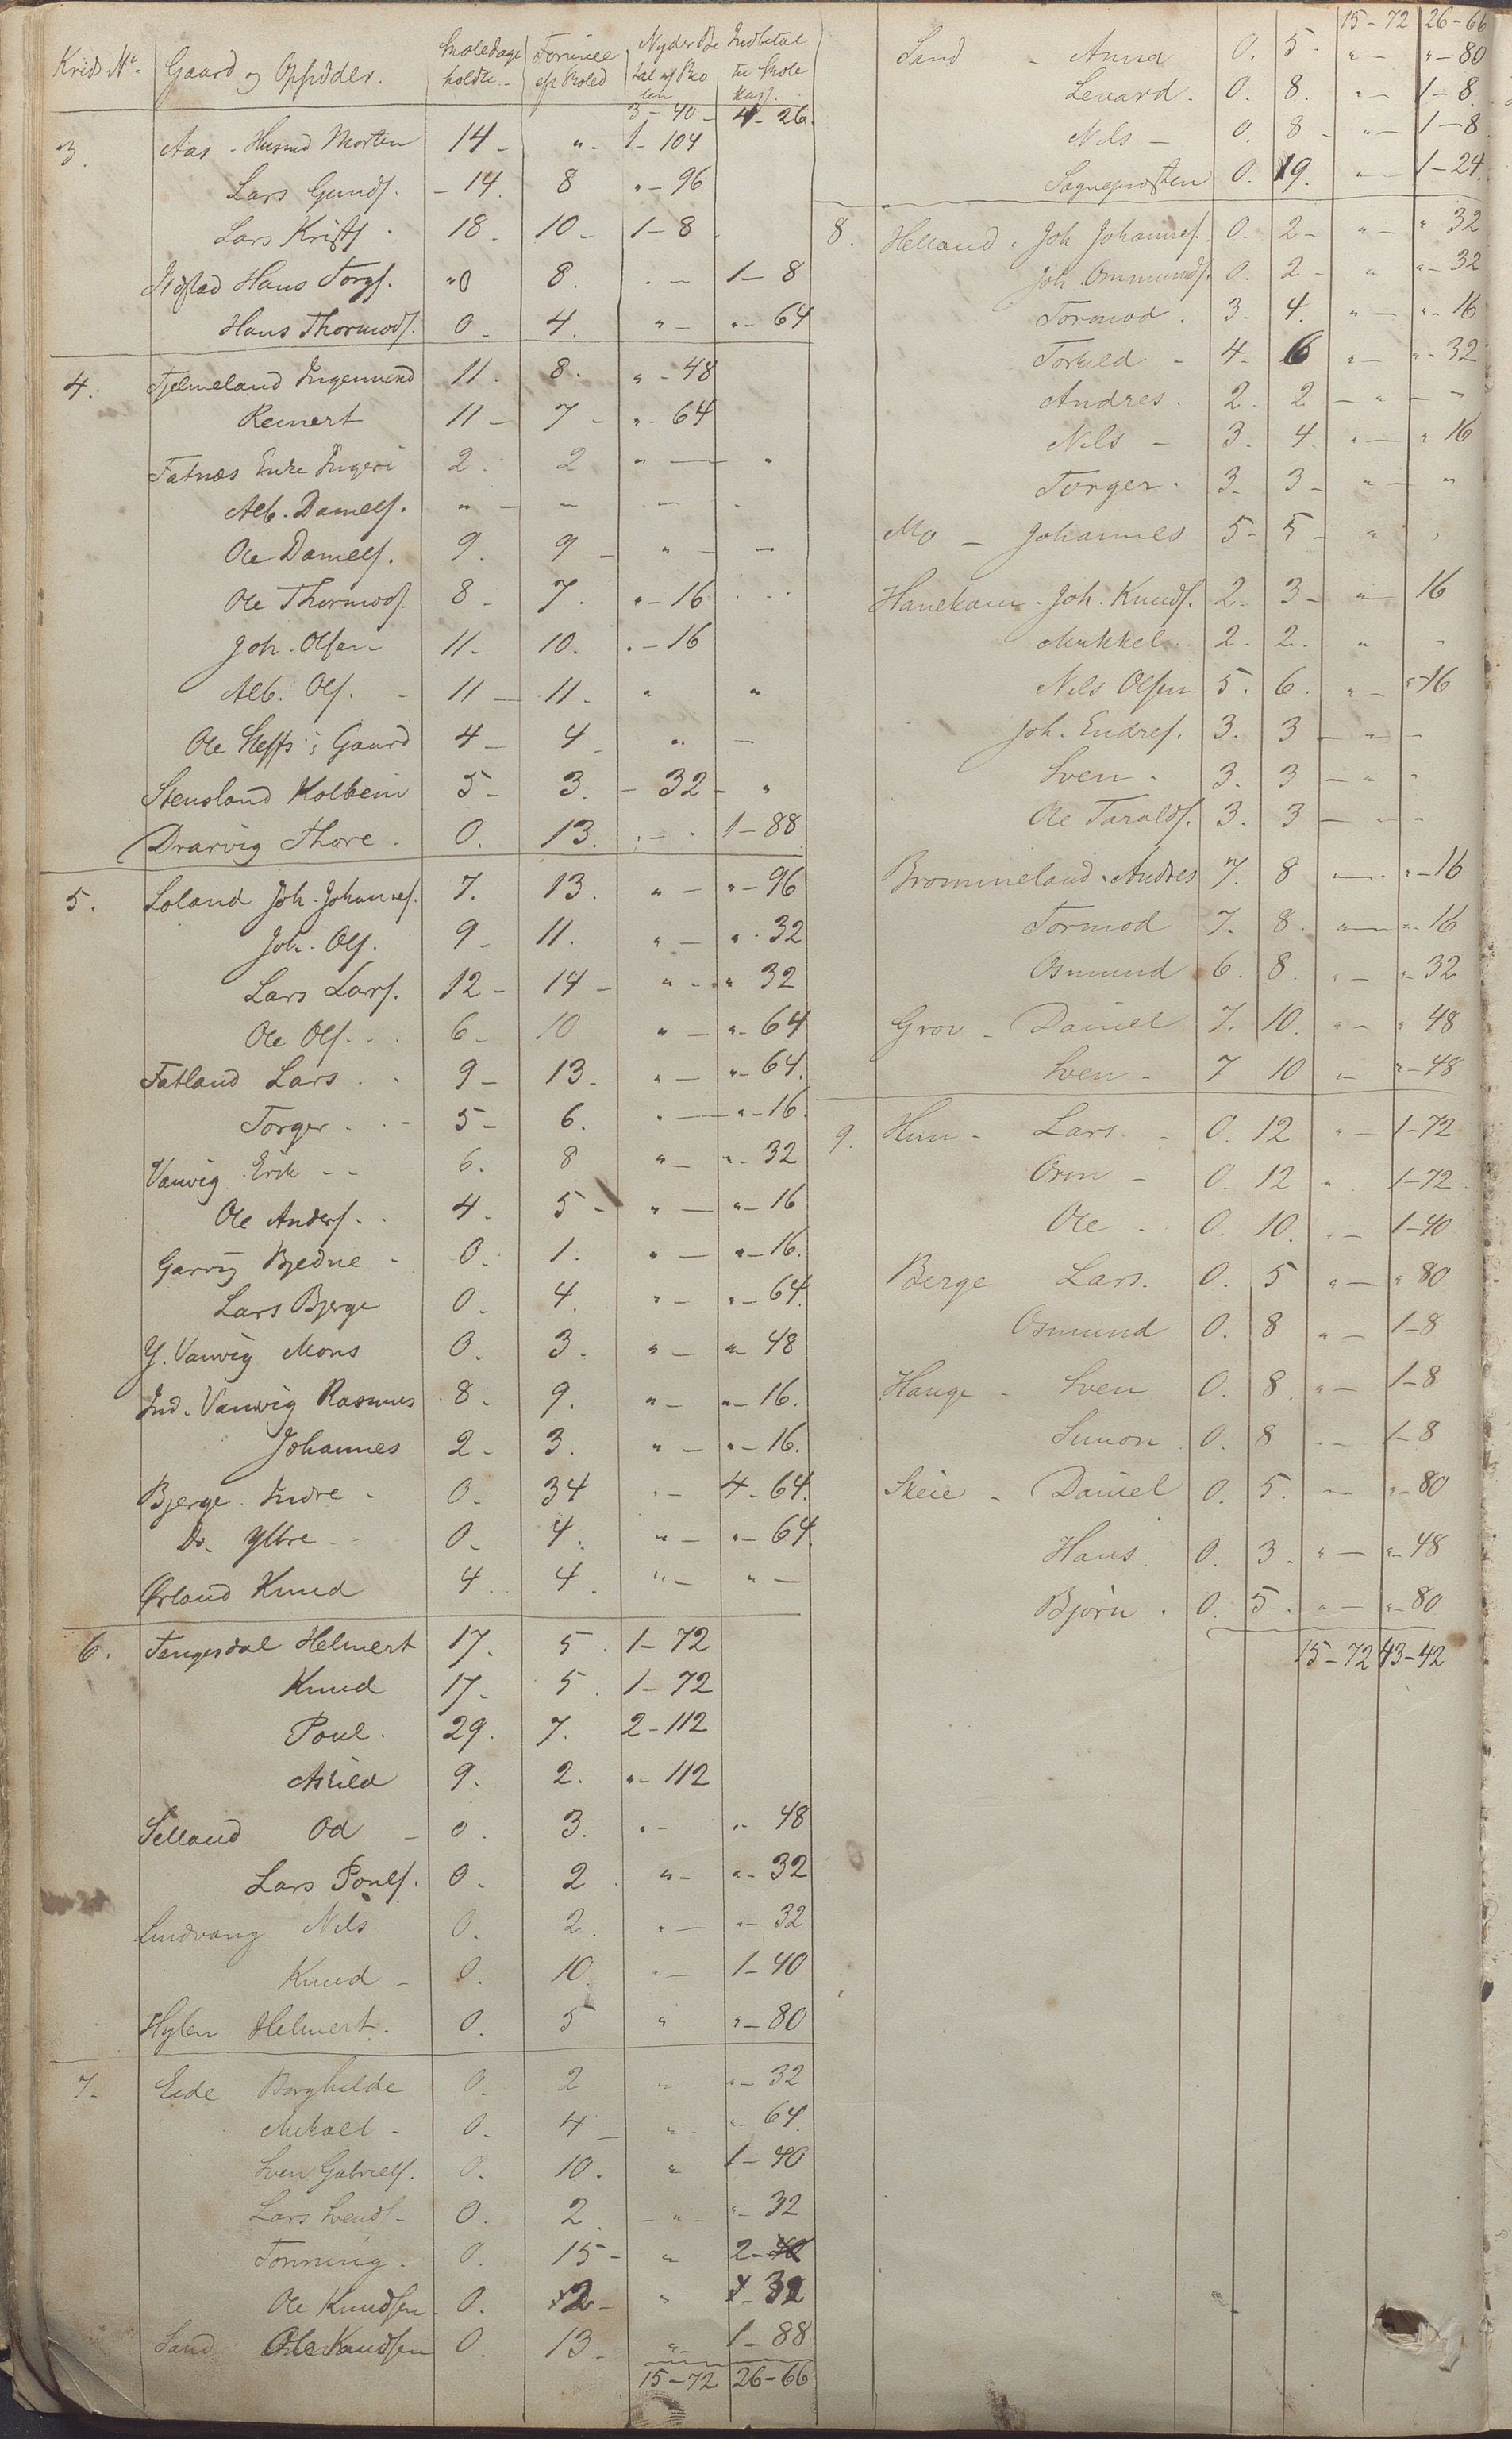 Kreds No. Gaard og Opsidder. Skoledage holdte Formue eft Skoled Nyder Betal af Skolen Indbetal til Skole Kass.
3-40- 4-26.
3. Aas - Husmd Morten 14- "- 1-104
Lars Gunds. -14. 8 "-96.
Lars Krists. 18. 10- 1-8
Hans Torgs. "0 8. .- 1-8
Hans Thormods. 0- 4. "- "-64
4. Fjelmeland Ingemund 11. 8. "-48
Reinert 11- 7- "-64
Fatnæs Enke Ingeri 2. 2 "- "
Alb. Daniels. "- - - .
Ole Daniels. 9. 9- "- -
Ole Thormods. 8- 7. "-16
Joh. Olsen 11- 10. "-16
Alb. Ols. - 11- 11. " "
Ole Steffs: Gaard 4- 4- " -
Stensland Kolbein 5- 3. -32- "
Drarvig Thore. 0. 13. .-. 1-88
5. Loland Joh. Johannes. 7. 13. "- "-96
Joh. Ols. 9- 11. "- "-32
Lars Lars. 12- 14- "- "32
Ole Ols. 6- 10 "- "-64
Fatland Lars 9- 13. "- "-64.
Torger 5- 6. "- "-16.
Vanvig Erik 6. 8 "- "-32
Ole Anders. 4. 5- "- "-16
Garvig Bjedne - 0. 1. "- "-16.
Lars Bjerge 0- 4. "- "-64.
Y. Vanvig Mons 0. 3. "- "48
Ind. Vanvig Rasmus 8. 9. "- "-16.
Johannes 2- 3. "- "-16.
Bjerge Indre - 0. 34 "- 4-64.
Do. Ytre 0. 4. "- "-64
Ørland Knud 4. 4. "- "-
6. Tengesdal Helmert 17. 5. 1-72
Knud 17- 5. 1-72
Poul. 29. 7. 2-112
Askild 9. 2. "-112
Selland Od - 0. 3. "- "-48
Lars Pouls. 0- 2 "- "-32
Lindvang Nils 0. 2. "- "-32
Knud - 0. 10. "- 1-40
Hylen Helmert. 0. 5 " "-80
7. Eide Borghilde 0. 2 " "-32
Mikael - 0. 4- " "-64.
Sven Gabriels. 0. 10. " 1-40
Lars Svends- 0. 2 -"- "-32
Tonning. 0. 15- " 2-
Ole Knudsen. 0. 2- " 32
Sand Ole Knudsen 0. 13- "- 1-88
15-72 26-66
15-72 26-66
Sand - Anna 0. 5- "- "-80
Levard. 0. 8. "- 1-8
Nils - 0. 8- "- 1-8
Sognepræsten 0. 19. "- 1-24.
8. Helland. Joh Johannes. 0. 2- "- "32
Joh. Ommunds. 0. 2- " "-32
Tormod. 3. 4. "- "-16
Torkild - 4- 6 "- "-32
Andres. 2. 2 -"- -"
Nils - 3. 4. "- "16
Torger. 3. 3- "- "
Mo - Johannes 5- 5- " "
Hanekam. Joh. Knuds. 2- 3- "- 16
Mikkel. 2- 2. " "
Nils Olsen. 5. 6. "- "-16
Joh. Endres. 3. 3 -"- -
Sven - 3. 3 -" "
Ole Taralds. 3. 3 - "-
Brommeland. Andres 7. 8 "- "-16
Tormod 7. 8. "- "-16
Osmund 6. 8. "- "-32
Grov - Daniel 7. 10. "- "48
Sven - 7 10 "- "-48
9. Hun - Lars - 0. 12 "- 1-72
Orm - 0. 12 " 1-72
Ole - 0. 10. "- 1-40
Berge Lars. 0. 5 "- "80
Osmund 0. 8 "- 1-8
Hauge - Sven 0. 8. "- 1-8
Simon 0. 8 "- 1-8
Skeie - Daniel 0. 5. "- "-80
Hans. 0. 3. "- "-48
Bjørn. 0. 5. "- "-80
15-72 43-42